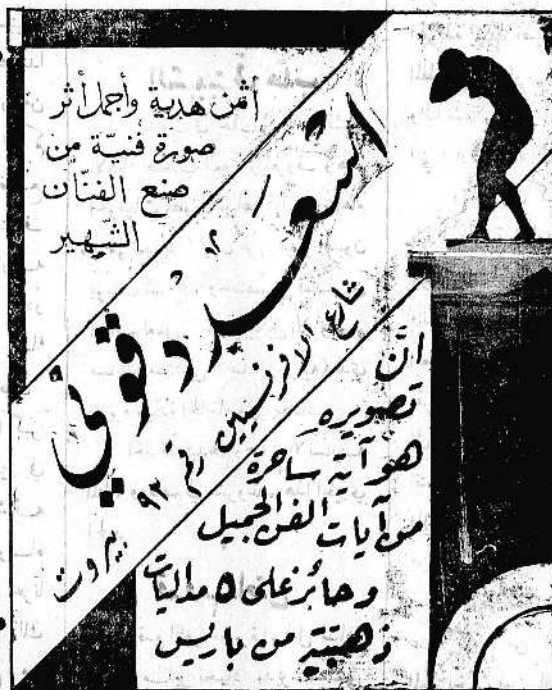 اثمن هدية وأجمل أثر
صورة فنيّة من
صنع الفنّان
الشهير
اسعد دقوني
شارع الافرنسيين رقم ٩٣ بيروت
انّ
تصويره
هو آية ساحرة
من آيات الفن الجميل
وحائز على ٥ مداليات
ذهبيّة من باريس